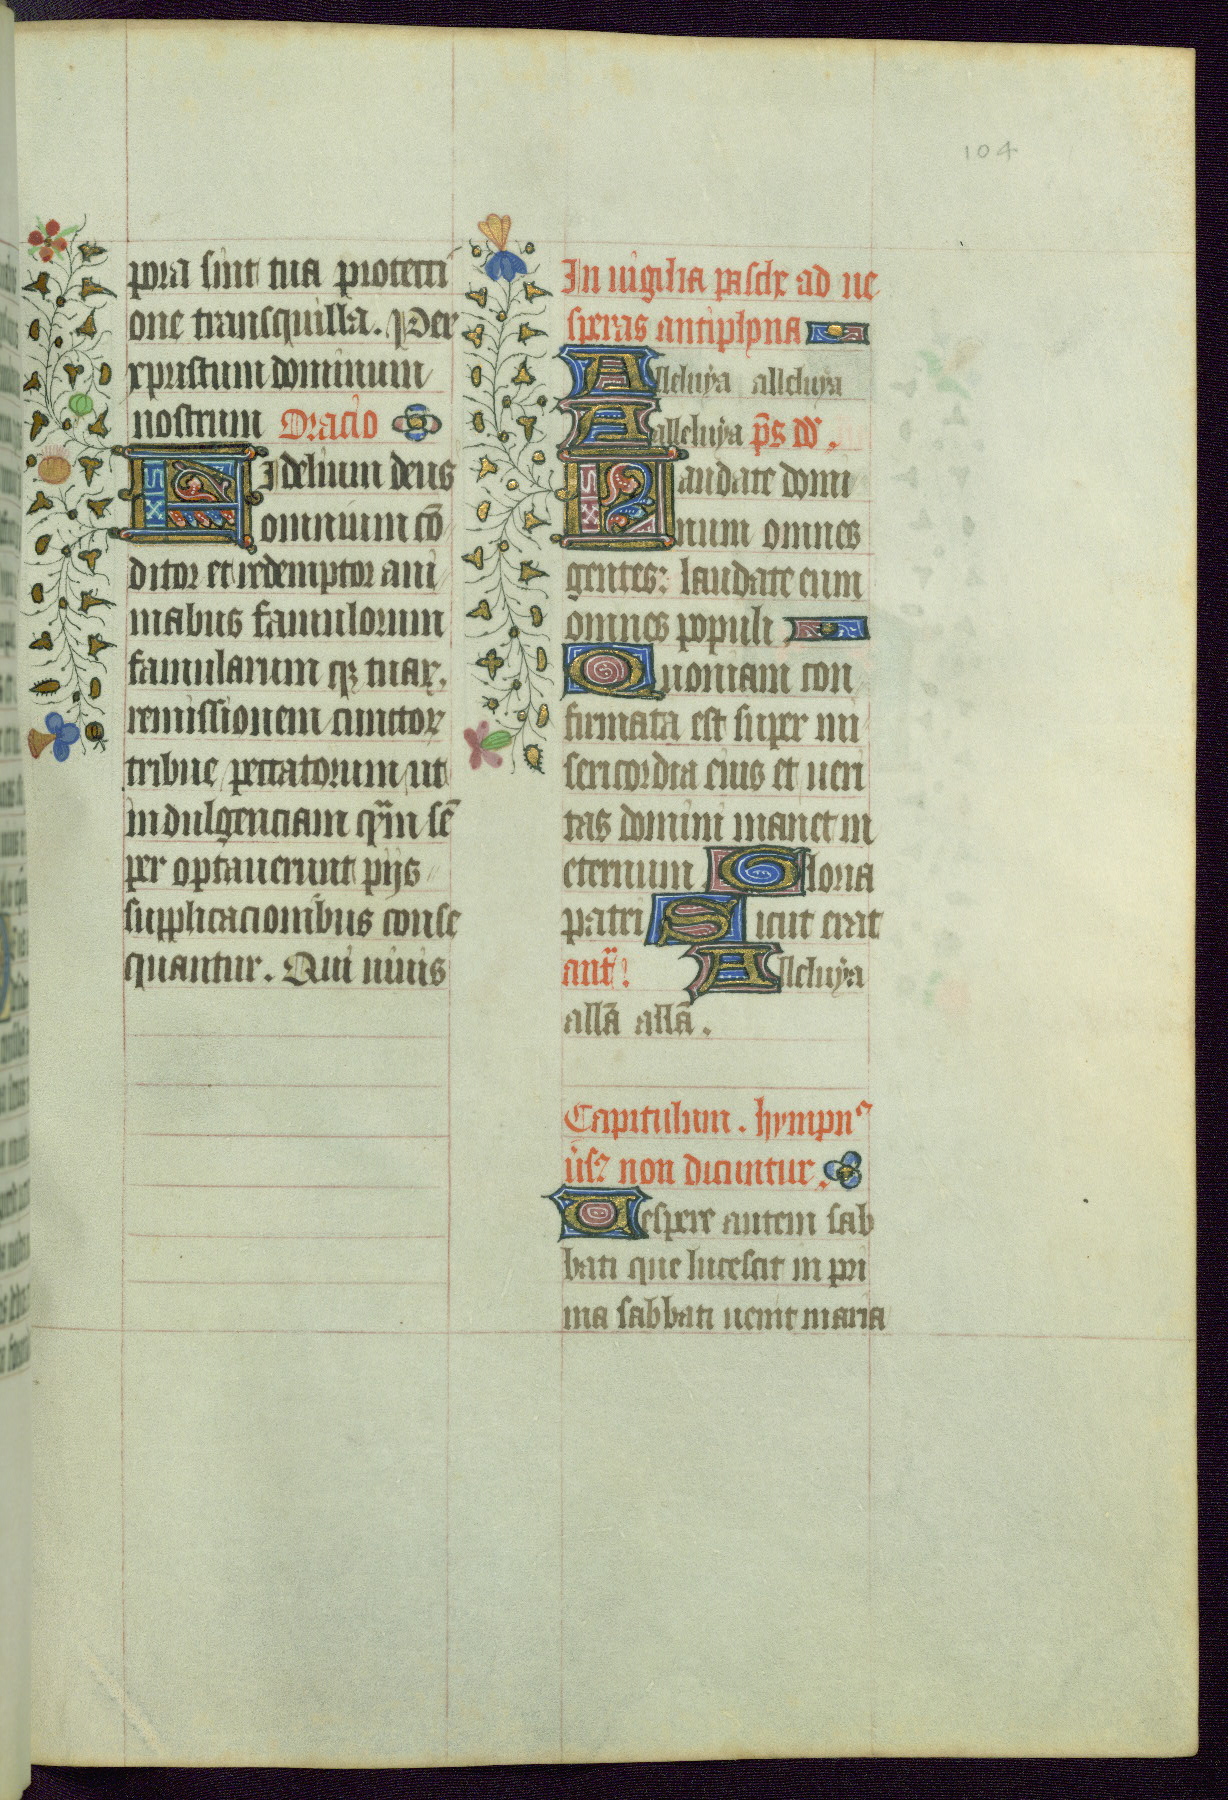 104
pora sint tua protecti
one transquilla. Per
xpristum dominum
nostrum Oracio
Fidelium deus
omnium cō
ditor et redemptor ani
mabus famulorum
famularum qꝫ tuaꝝ.
remissionem cunctoꝝ
tribue peccatorum ut
indulgenciam quam sē
per optauerunt pijs
supplicacionibus conse
quantur. Qui uiuis
In uigilia pasche ad ue
speras antiphona
Alleluya alleluya
Alleluya p̄s dd̄.
Laudate domi
num omnes
gentes: laudate eum
omnes populi
Quoniam con
firmata est super nu
sericordia eius et ueri
tas domini manet in
eternum Gloria
patri Sicut erat
ant̄ Alleluya
allā allā.
Capitulum. hympn⁹
ūsꝫ non dicuntur.
Uespere autem sab
bati que lucescit in pri
ma sabbati uenit maria